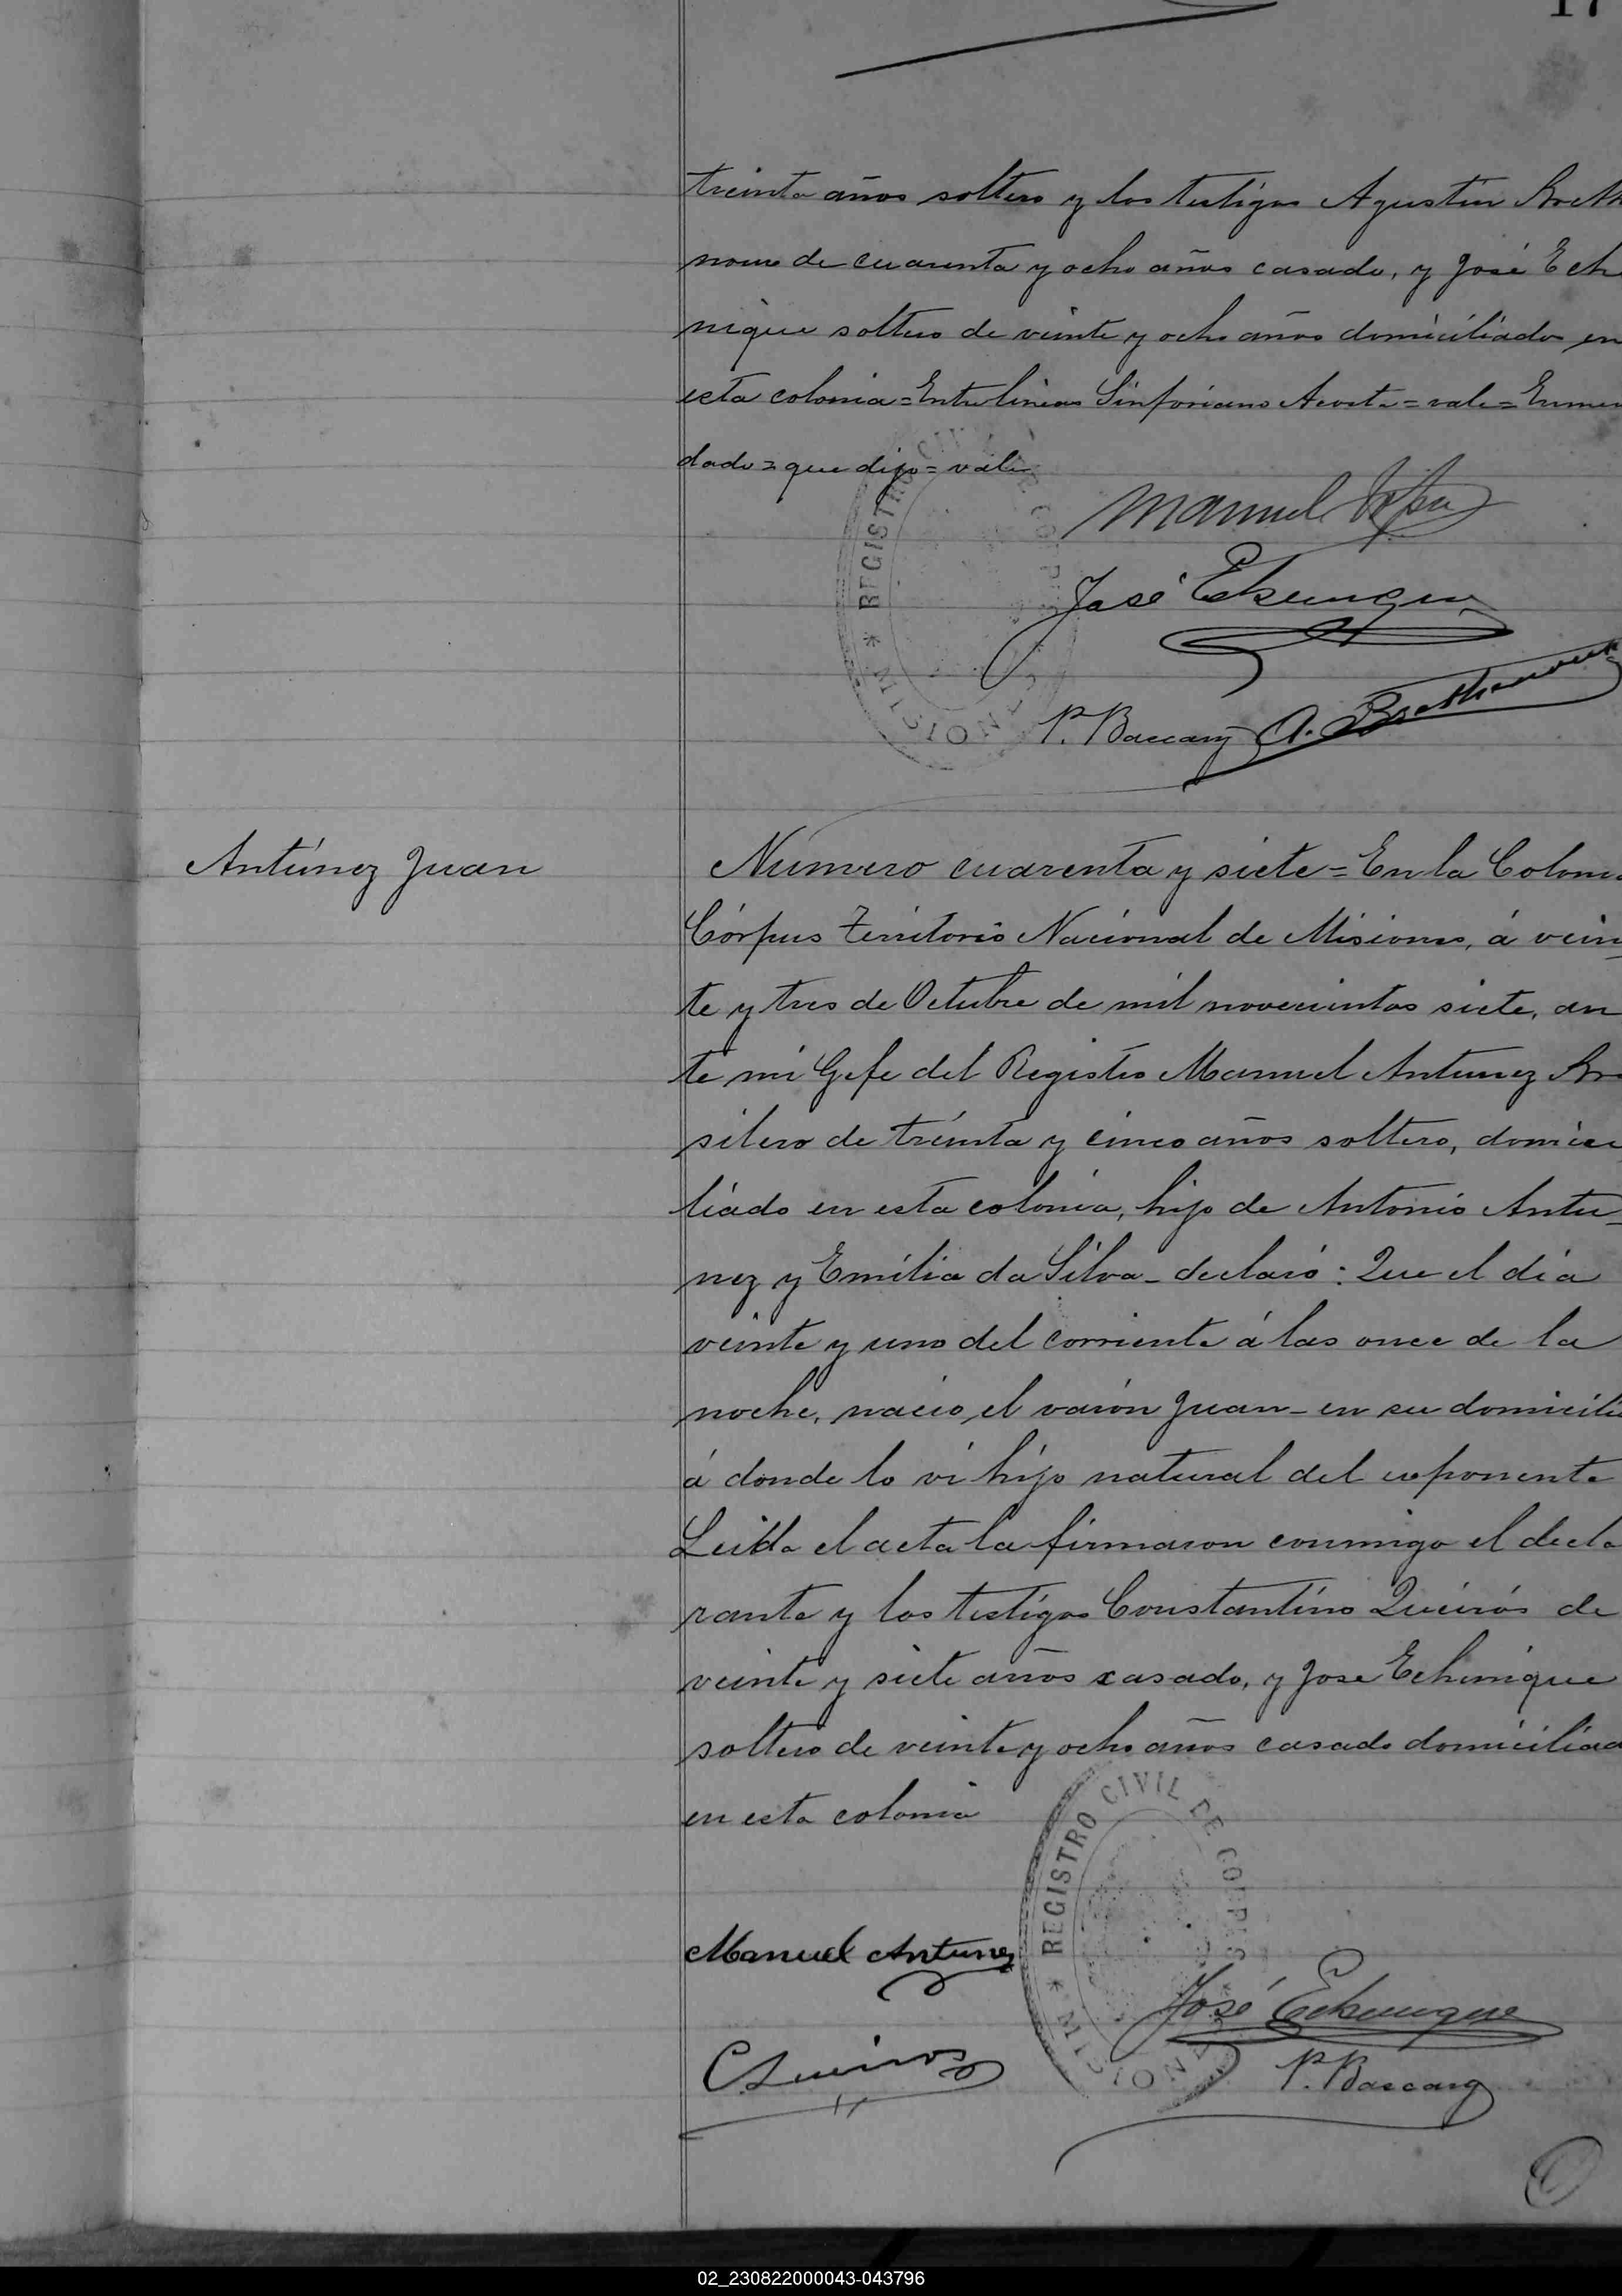 17
treinta años soltero y los testigos Agustin Breth
noux de cuarenta y ocho años casado, y José Eche
nique soltero de veinte y ocho años domiciliados en
esta colonia = Entrelineas Sinforiano Acosta = vale = Enmen
dado = que dijo = vale
REGISTRO CIVIL DE CORPUS * MISIONES
Manuel
José Echenique
P. Baccary A. Brethenoux
Antúnez Juan
Número cuarenta y siete = En la Colonia
Córpus Territorio Nacional de Misiones, á vein
te y tres de Octubre de mil novecientos siete, an
te mi Gefe del Registro Manuel Antunez Bra
silero de treinta y cinco años soltero, domici
liado en esta colonia, hijo de Antonio Antu-
nez y Emilia da Silva - declaró: Que el dia
veinte y uno del corriente á las once de la
noche, nació el varón Juan - en su domicilio
á donde lo vi hijo natural del exponente
Leida el acta la firmaron conmigo el decla
rante y los testigos Constantino Queirós de
veinte y siete años casado, y Jose Echenique
soltero de veinte y ocho años casado domiciliad
en esta colonia
REGISTRO CIVIL DE CORPUS * MISIONES
Manuel Antunez
José Echenique
C Queiros
P. Baccary
02_230822000043-043796